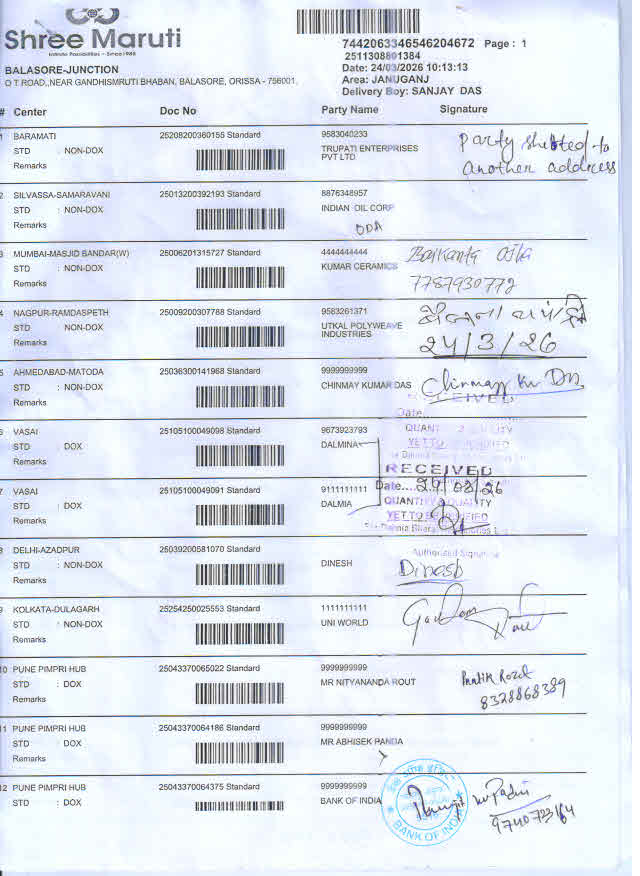 Shree Maruti
Infinite Possibilities - Since 1985
7442063346546204672 Page : 1
2511308801384
Date: 24/03/2026 10:13:13
Area: JANUGANJ
Delivery Boy: SANJAY DAS
BALASORE-JUNCTION
O T ROAD,,NEAR GANDHISMRUTI BHABAN, BALASORE, ORISSA - 756001,
# Center Doc No Party Name Signature
1 BARAMATI 25208200360155 Standard 9583040233
STD : NON-DOX TRUPATI ENTERPRISES
PVT LTD
Remarks
Party shifted to
another address
2 SILVASSA-SAMARAVANI 25013200392193 Standard 8876348957
STD : NON-DOX INDIAN OIL CORP
Remarks
ODA
3 MUMBAI-MASJID BANDAR(W) 25006201315727 Standard 4444444444
STD : NON-DOX KUMAR CERAMICS
Remarks
Baikanta Ojha
7787930772
4 NAGPUR-RAMDASPETH 25009200307788 Standard 9583261371
STD NON-DOX UTKAL POLYWEAVE
INDUSTRIES
Remarks
24/3/26
5 AHMEDABAD-MATODA 25036300141968 Standard 9999999999
STD : NON-DOX CHINMAY KUMAR DAS
Remarks
Chinmay Ku Das
RECEIVED
Date
6 VASAI 25105100049098 Standard 9673923793
STD : DOX DALMINA
Remarks
QUANTITY & QUALITY
YET TO BE VERIFIED
7 VASAI 25105100049091 Standard 9111111111
STD : DOX DALMIA
Remarks
RECEIVED
Date....24/03/26
QUANTITY & QUALITY
YET TO BE VERIFIED
Authorised Signatory
8 DELHI-AZADPUR 25039200581070 Standard
STD : NON-DOX DINESH
Remarks
Dinesh
9 KOLKATA-DULAGARH 25254250025553 Standard 1111111111
STD : NON-DOX UNI WORLD
Remarks
10 PUNE PIMPRI HUB 25043370065022 Standard 9999999999
STD : DOX MR NITYANANDA ROUT
Remarks
8328868389
11 PUNE PIMPRI HUB 25043370064186 Standard 9999999999
STD : DOX MR ABHISEK PANDA
Remarks
12 PUNE PIMPRI HUB 25043370064375 Standard 9999999999
STD : DOX BANK OF INDIA
BANK OF INDIA